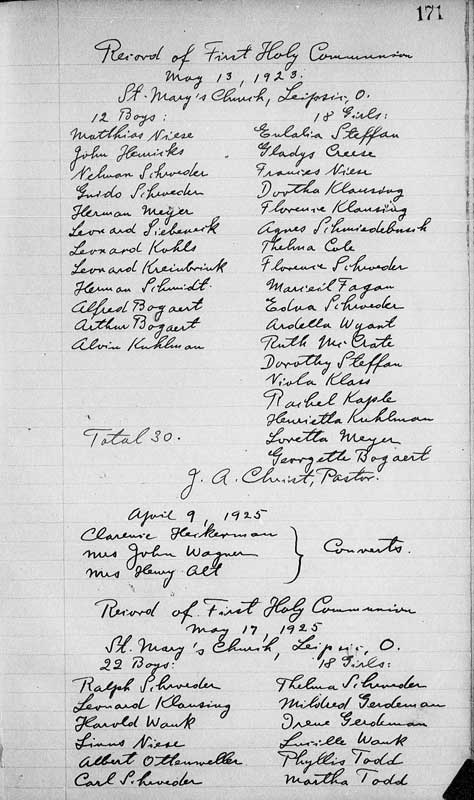 171
Record of First Holy Communion
May 13, 1923.
St. Mary's Church, Leipsic, O.
12 Boys: 18 Girls:
Matthias Niese Eulalia Steffan
John Henricks Gladys Creese
Nelman Schroeder Frances Niese
Guido Schroeder Dortha Klausing
Herman Meyer Florence Klausing
Leonard Siebeneck Agnes Schmiedebusch
Leonard Kohls Thelma Cole
Leonard Kreinbrink Florence Schroeder
Herman Schmidt. Fagan
Alfred Bogaert Edna Schroeder
Arthur Bogaert Ardella Wyant
Alvin Kuhlman Ruth Mc Crate
Dorothy Steffan
Viola Klass
Rachel Kaple
Henrietta Kuhlman
Total 30. Loretta Meyer
Georgette Bogaert
J. A. Christ, Pastor.
April 9, 1925
Clarence Heckerman
Mrs John Wagner } Converts.
Mrs Henry Alt
Record of First Holy Communion
May 17, 1925
St. Mary's Church, Leipsic, O.
22 Boys: 18 Girls:
Ralph Schroeder Thelma Schroeder
Leonard Klausing Mildred Gerdeman
Harold Wank Irene Gerdeman
Linus Niese Lucille Wank
Albert Ottenweller Phyllis Todd
Carl Schroeder Martha Todd